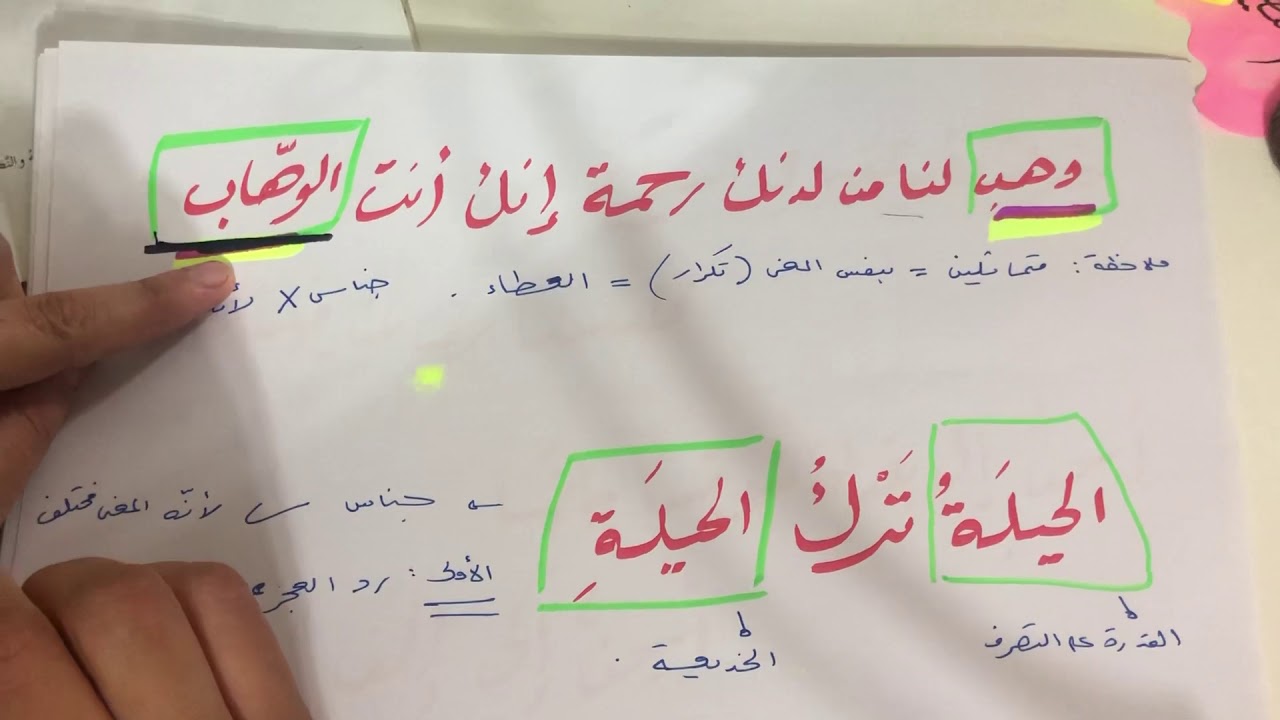 وهب لنا من لدنك رحمة إنك أنت الوهّاب
ملاحظة: متماثلين = بنفس المعنى (تكرار) = العطاء . جناس X لأنه
الحيلَةُ تَرْكُ الحيلَةِ
جناس لأنّه المعنى مختلف
الأولى: رد العجز
القدرة على التصرف
الخديعة .